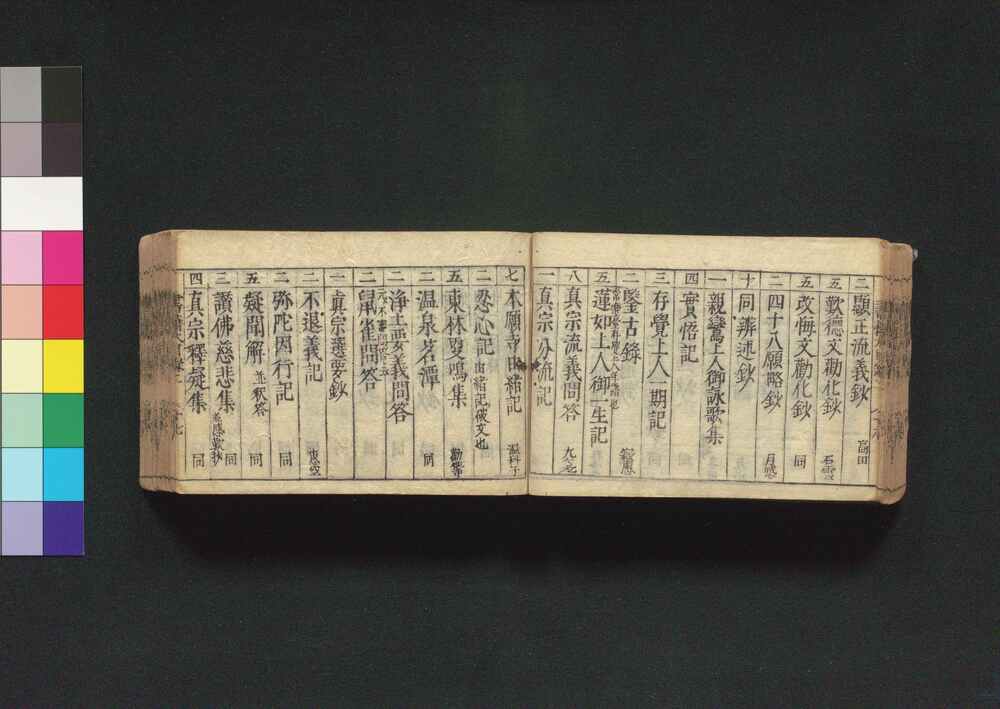 二 顕正流義鈔 高田
五 歎徳文勸化鈔
五 改悔文勸化鈔 同
二 四十八願略鈔 月感
十 同辨述鈔
一 親鸞上人御詠歌集
四 實悟記
三 存覺上人一期記
二 鑒古錄
五 蓮如上人御一生記
八 真宗流義問答
一 真宗分流記
七 本願寺由緒記
二 忍心記 由緒記破文也
五 東林夏鳴集
二 温泉茗潭 同
二 浄土要義問答
二 鼠雀問答
一 真宗選要鈔
二 不退義記
二 弥陀因行記 同
五 疑問解 並釈答 同
三 讃佛慈悲集 同
四 真宗釋疑集 同